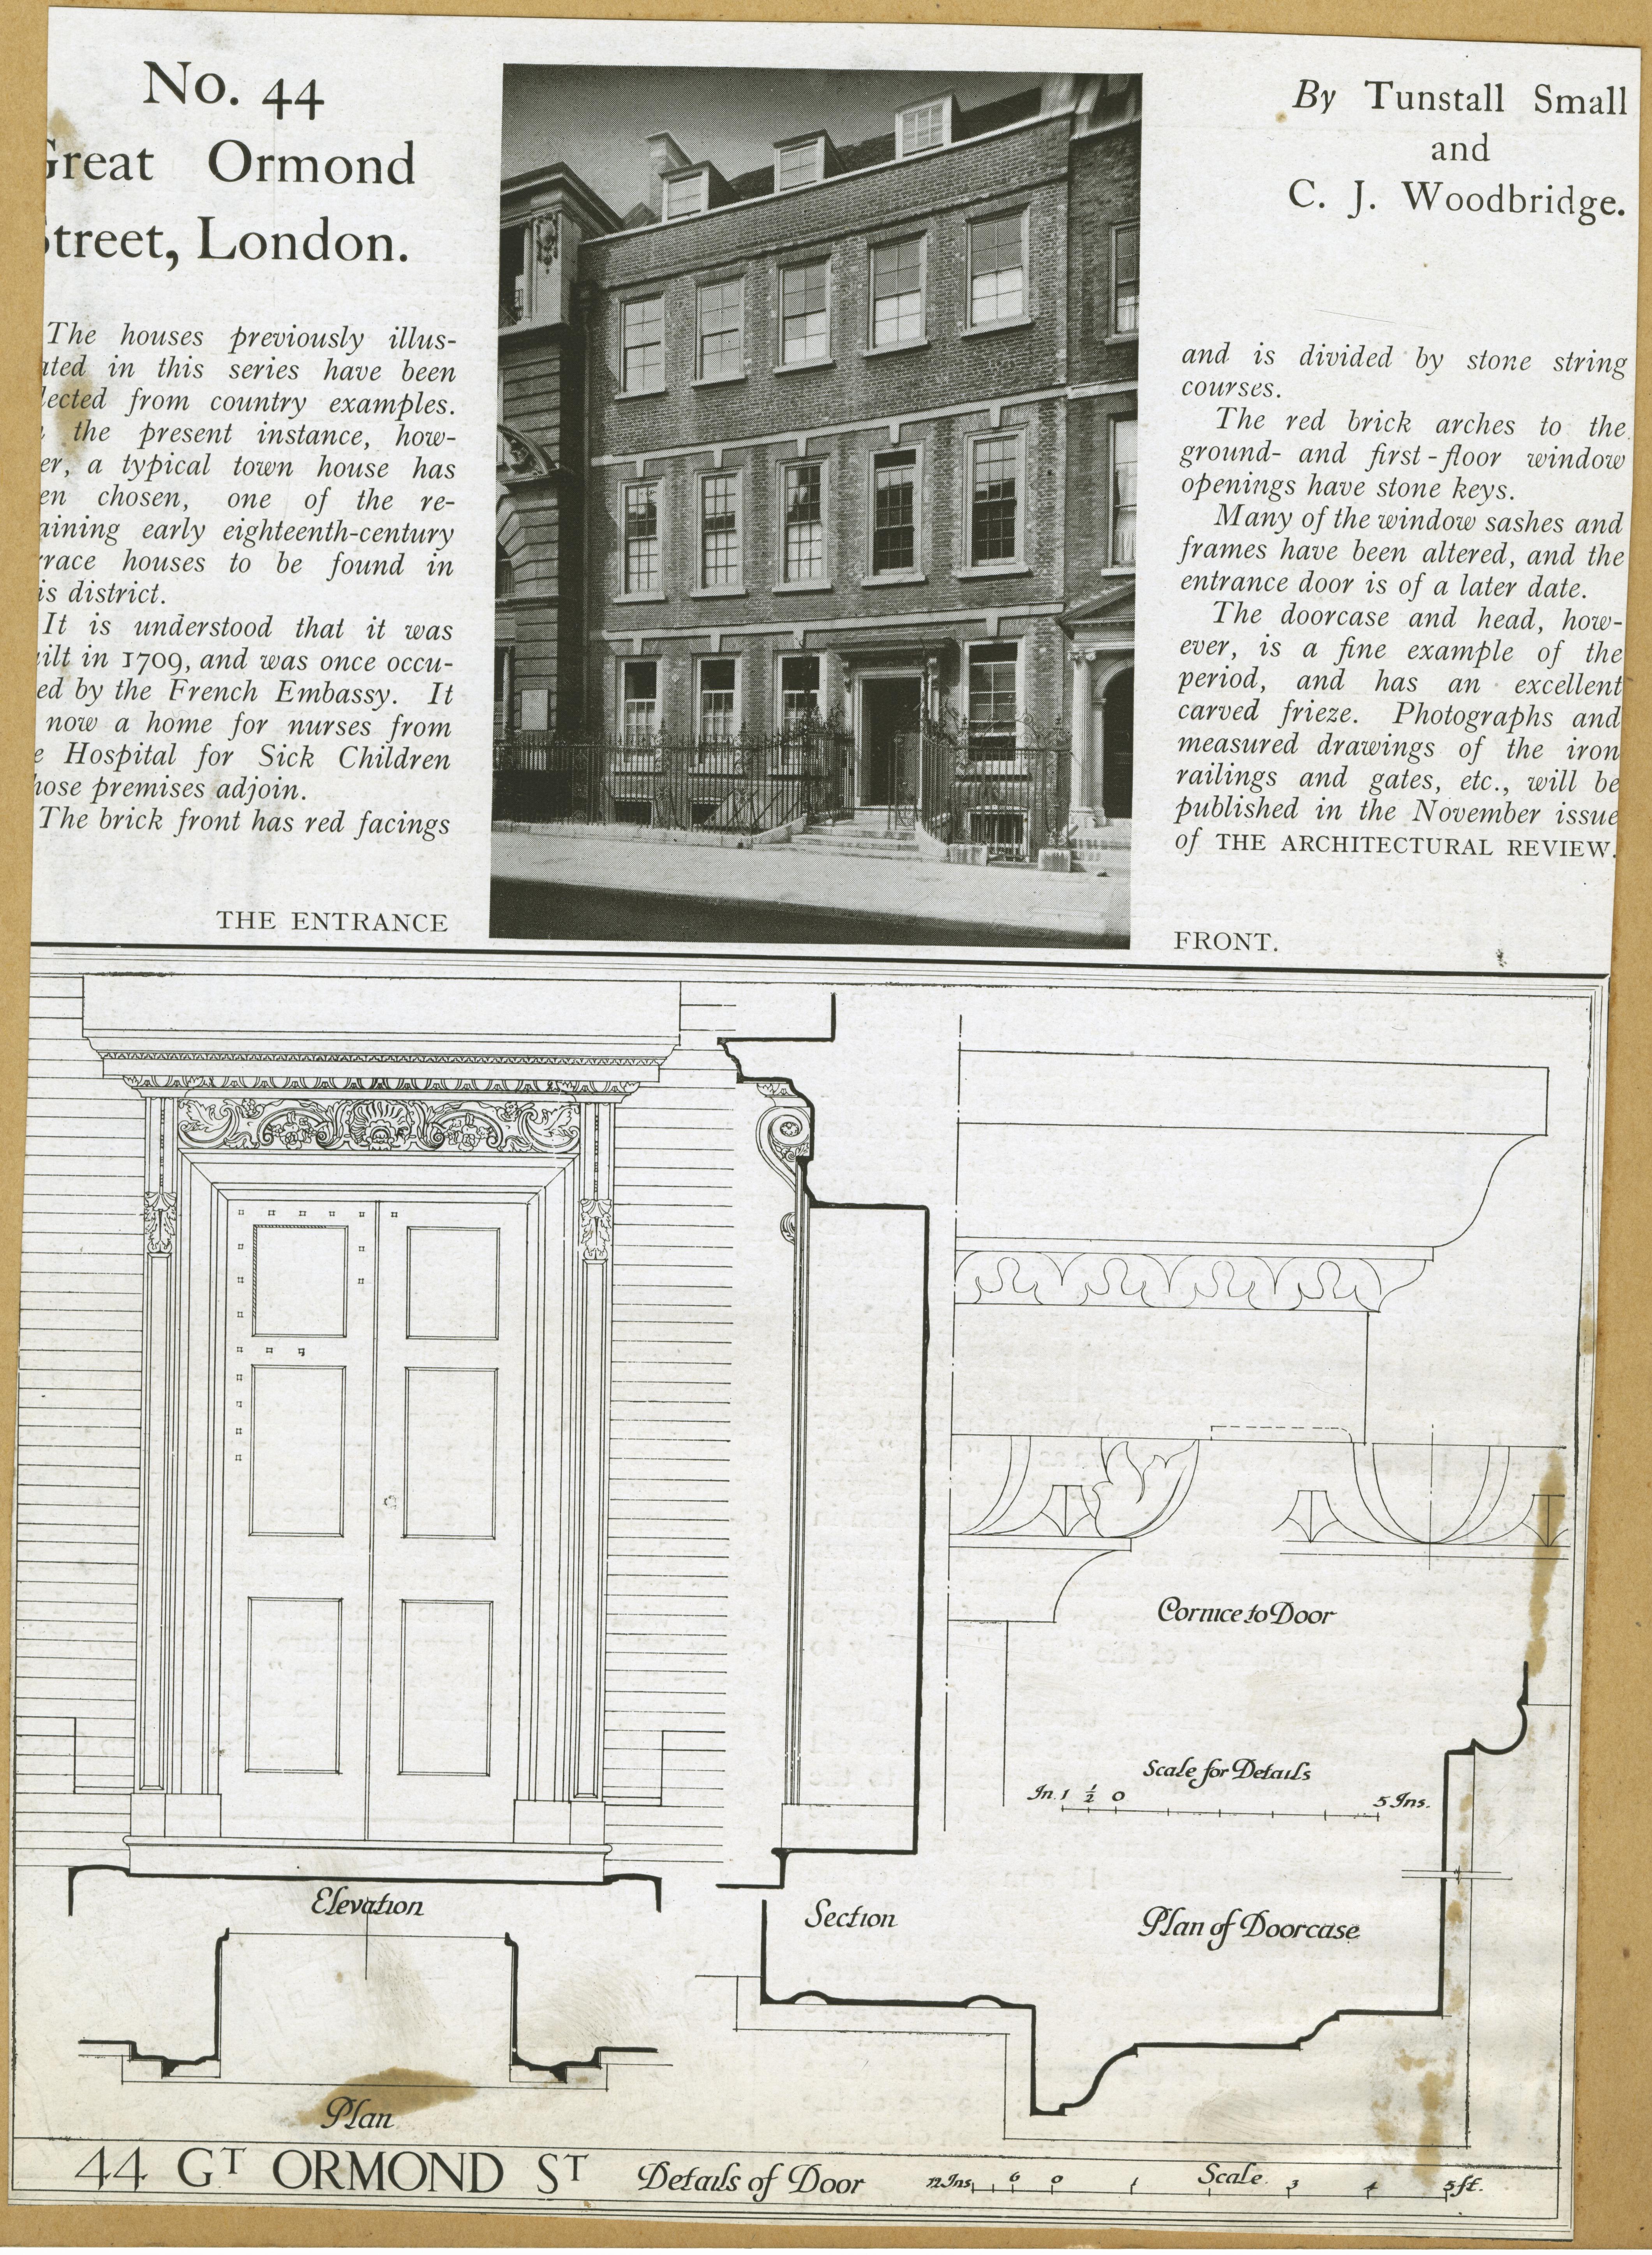 No. 44
Great Ormond
Street, London.
By Tunstall Small
and
C. J. Woodbridge.
The houses previously illus-
ated in this series have been
lected from country examples.
the present instance, how-
er, a typical town house has
en chosen, one of the re-
aining early eighteenth-century
rrace houses to be found in
is district.
It is understood that it was
uilt in 1709, and was once occu-
ed by the French Embassy. It
now a home for nurses from
e Hospital for Sick Children
hose premises adjoin.
The brick front has red facings
and is divided by stone string
courses.
The red brick arches to the
ground- and first-floor window
openings have stone keys.
Many of the window sashes and
frames have been altered, and the
entrance door is of a later date.
The doorcase and head, how-
ever, is a fine example of the
period, and has an excellent
carved frieze. Photographs and
measured drawings of the iron
railings and gates, etc., will be
published in the November issue
of THE ARCHITECTURAL REVIEW.
THE ENTRANCE FRONT.
Cornice to Door
Scale for Details
In. 1 ½ 0 5 Ins.
Elevation
Section
Plan of Doorcase
Plan
44 GT ORMOND ST Details of Door 12 Ins. 6 0 1 Scale. 3 4 5 ft.